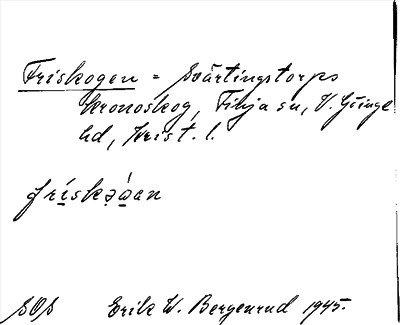 Friskogen = Svärtingstorps
kronoskog, Finja sn, V. Göinge
hd, Krist. l.
frískǝ̀ɷen
SOS Erik W. Bergenrud 1945.